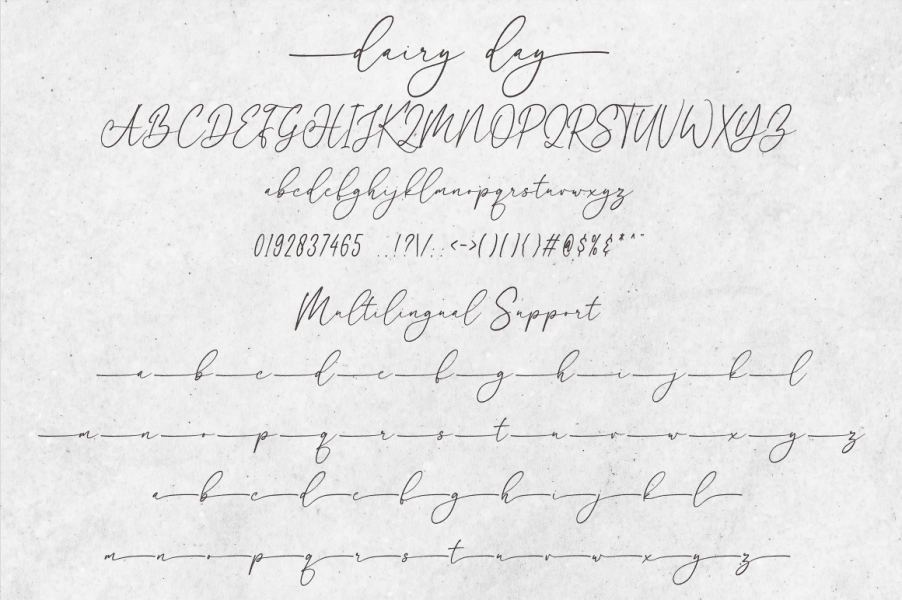 dairy day
ABCDEFGHIJKLMNOPQRSTUVWXYZ
abcdefghijklmnopqrstuvwxyz
0192837465 ..!?\/.. <->()[]{}#@$%&*^~
Multilingual Support
a b c d e f g h i j k l
m n o p q r s t u v w x y z
a b c d e f g h i j k l
m n o p q r s t u v w x y z